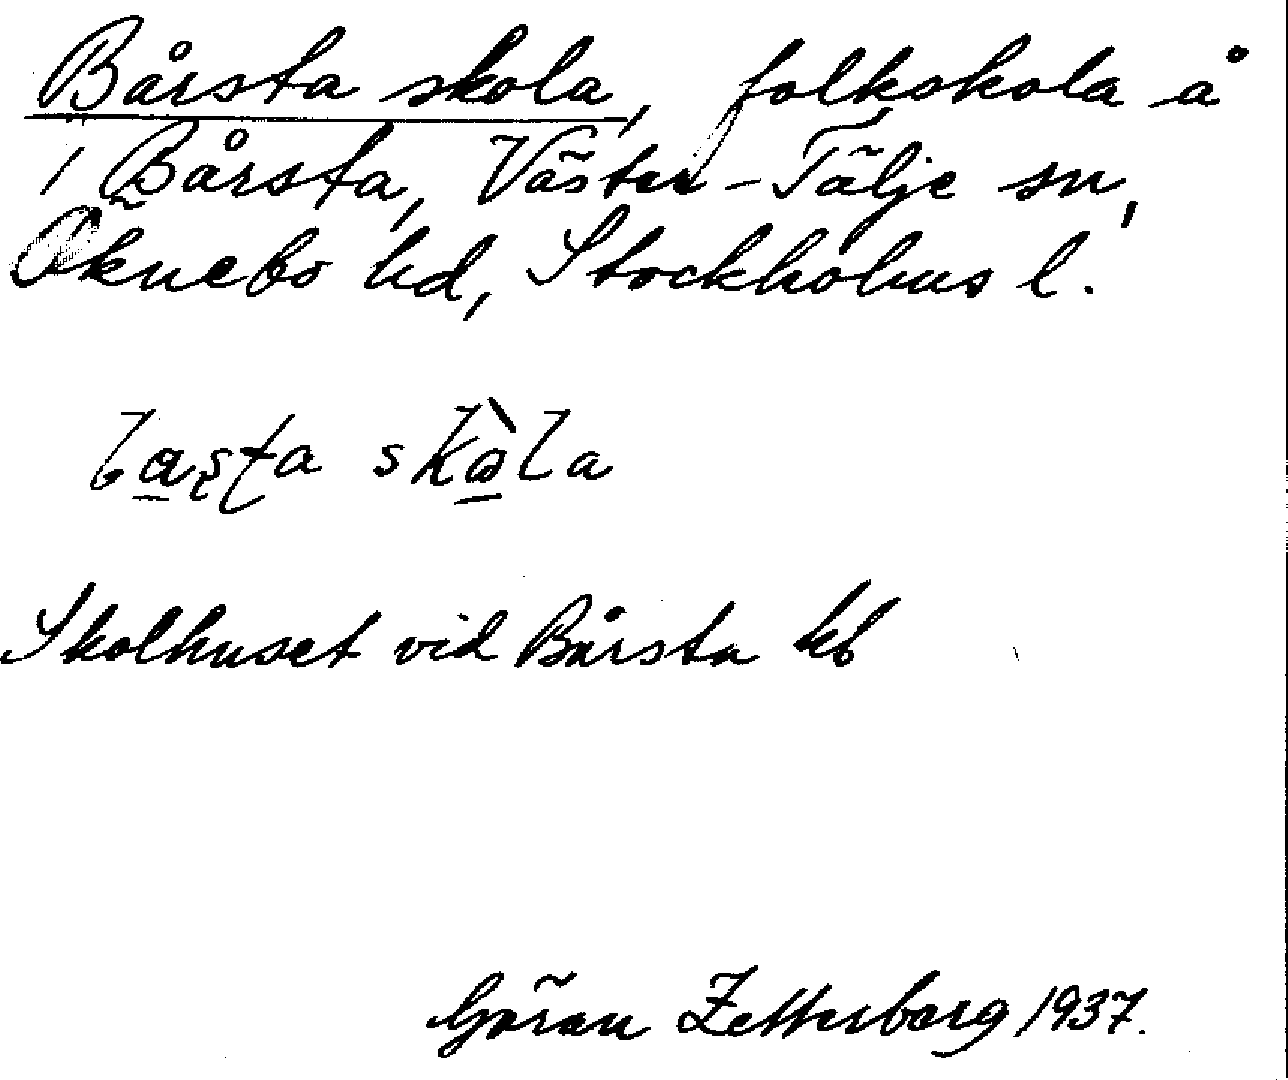 Bårsta skola, folkskola å
1 Bårsta, Väster-Tälje sn,
Öknebo hd, Stockholms l.
skola
Skolhuset vid Bårsta kb
Göran Zetterborg 1937.